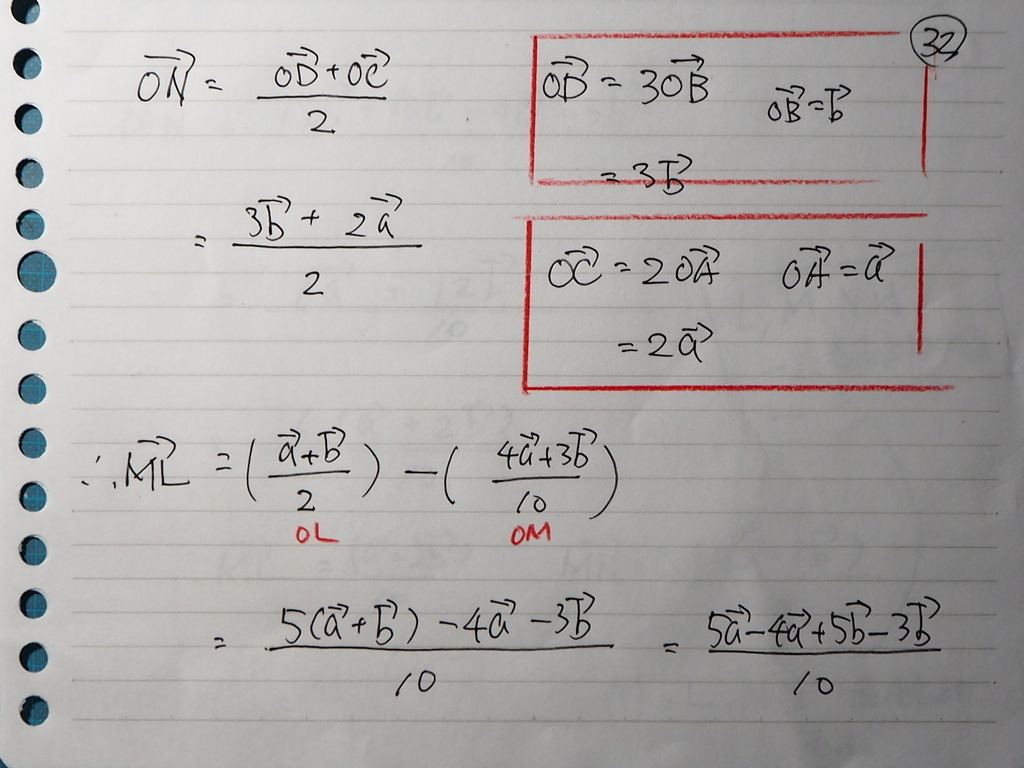 32
ON→ = (OD→ + OC→) / 2
OD→ = 3OB→ OB→ = b→
= 3b→
= (3b→ + 2a→) / 2
OC→ = 2OA→ OA→ = a→
= 2a→
∴ ML→ = ((a→ + b→) / 2) − ((4a→ + 3b→) / 10)
OL OM
= (5(a→ + b→) − 4a→ − 3b→) / 10 = (5a→ − 4a→ + 5b→ − 3b→) / 10